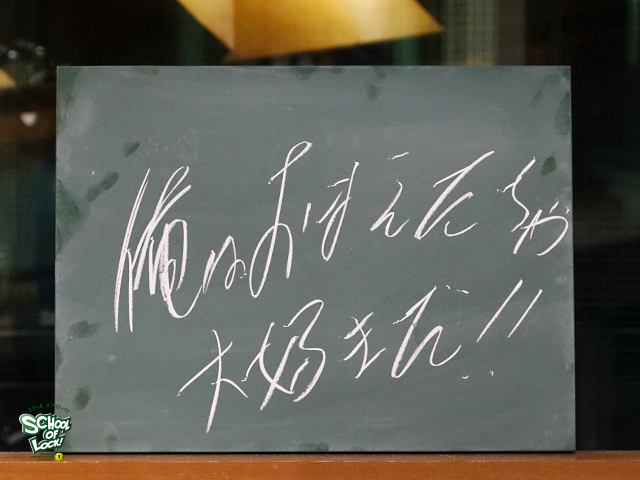 俺はおまえたちが
大好きだ!!
SCHOOL
OF
LOCK!